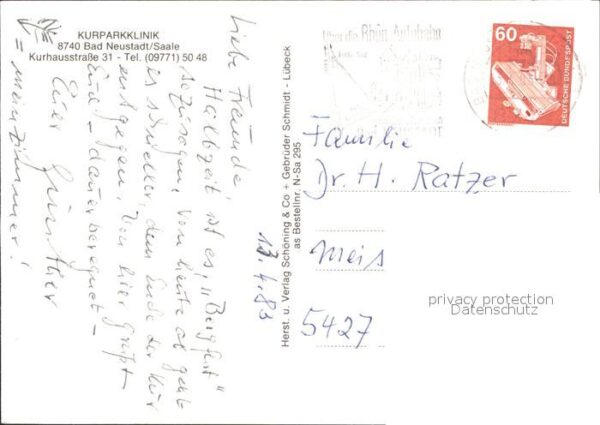 KURPARKKLINIK
8740 Bad Neustadt/Saale
Kurhausstraße 31 - Tel. (09771) 50 48
Liebe Freunde!
Halbzeit ist es, „Bergfest"
sozusagen, von heute ab geht
es schneller, dem Ende der Kur
entgegen. Von hier grüßt
Euch - dauerberegnet -
Euer Günther
= mein Zimmer!
13.4.83
Herst. u. Verlag Schöning & Co + Gebrüder Schmidt - Lübeck
as Bestellnr. N-Sa 295
über die Rhön Autobahn
60
DEUTSCHE BUNDESPOST
Familie
Dr. H. Ratzer
5427
privacy protection
Datenschutz